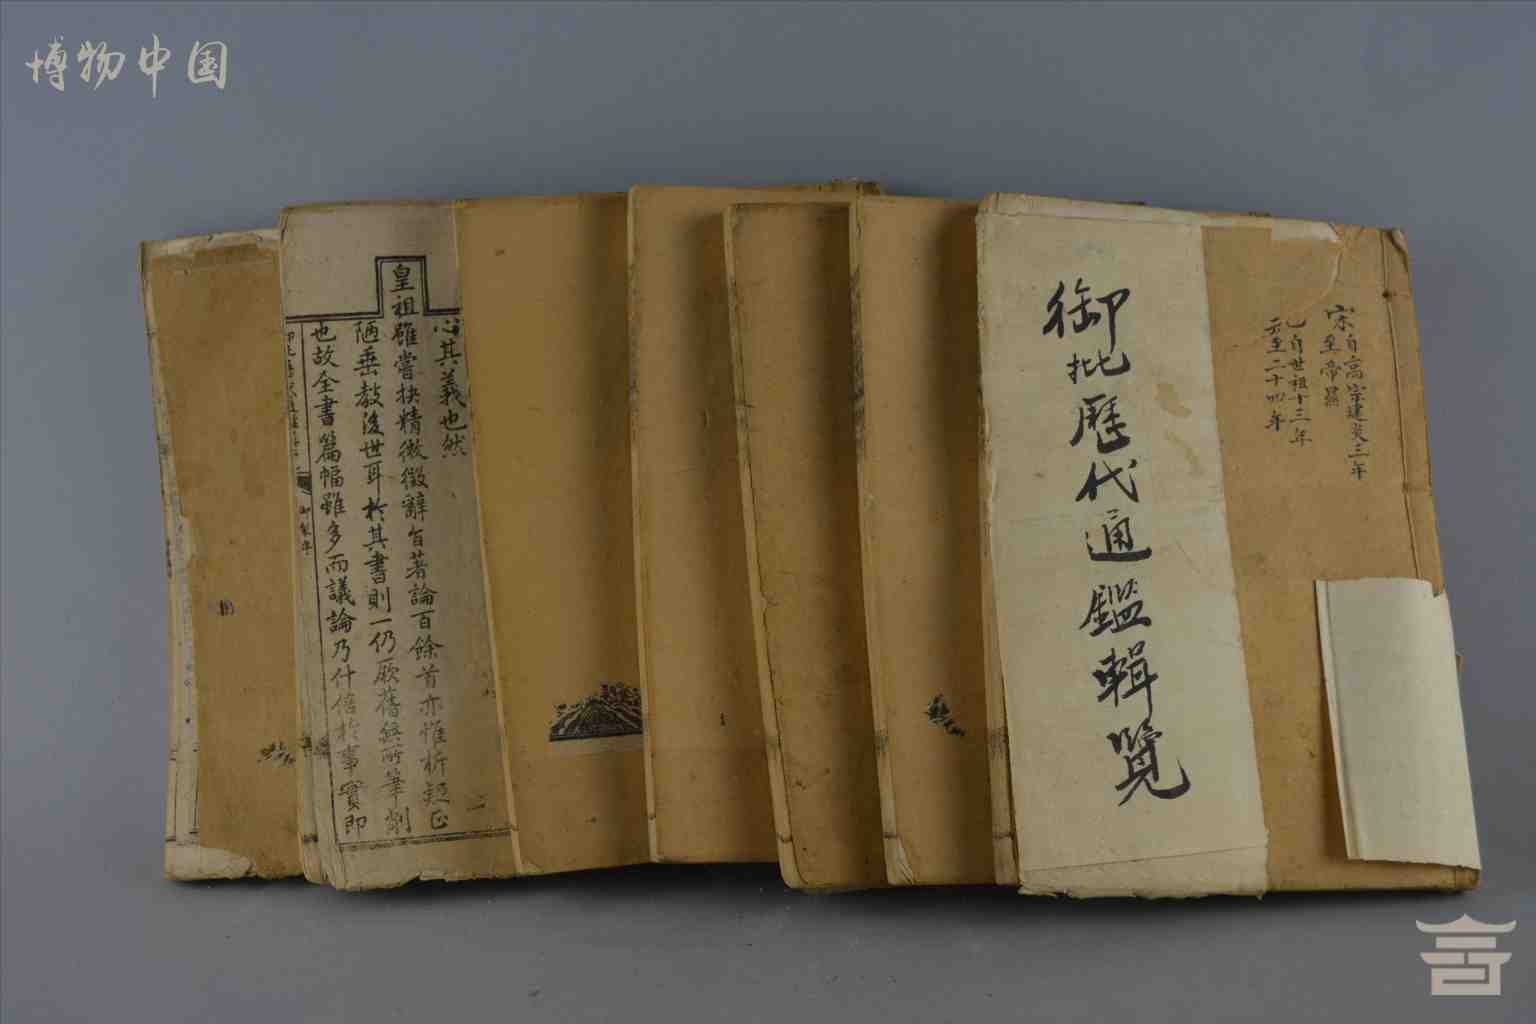 博物中国
御批歷代通鑑輯覽
宋自高宗建炎三年
至帝昺
自世祖十三年
至二十四年
心其義也然
皇祖雖嘗抉精微徵辭旨著論百餘首亦惟析疑正
陋垂教後世耳於其書則一仍厥舊無所筆削
也故全書篇幅雖多而議論乃什倍於事實即
御製序
二